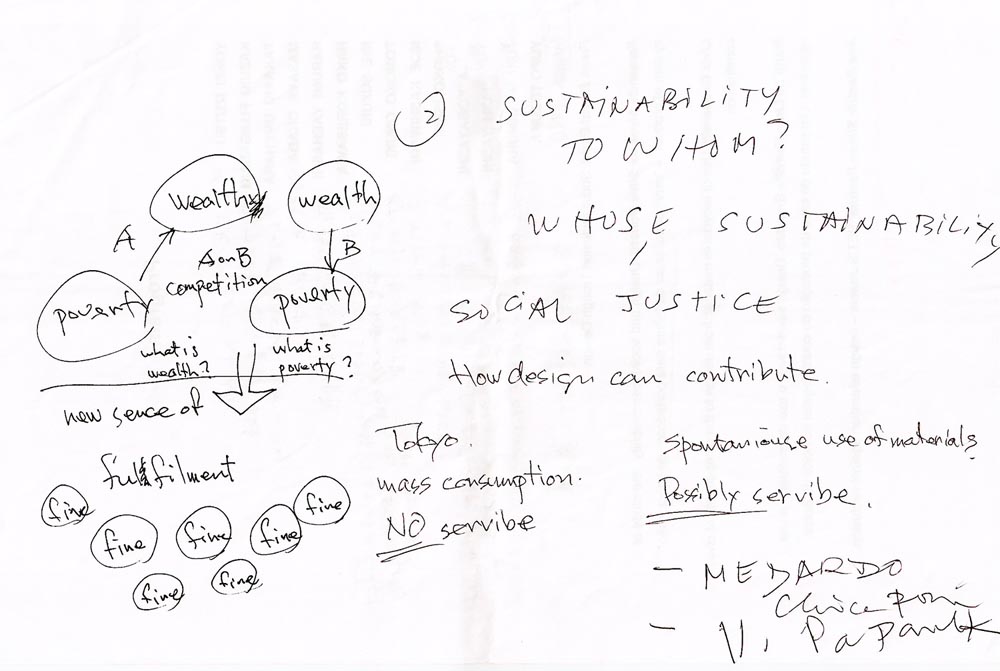 2
SUSTAINABILITY
TO WHOM?
WHOSE, SUSTAINABILITY
SOCIAL JUSTICE
How design can contribute.
wealth
wealth
A
B
A or B
competition
poverty
poverty
what is
wealth?
what is
poverty?
new sence of
fullfilment
fine
fine
fine
fine
fine
fine
fine
Tokyo.
mass consumption.
NO servibe
spontaniouse use of materials?
Possibly servibe.
- MEDARDO
- V. Papanek